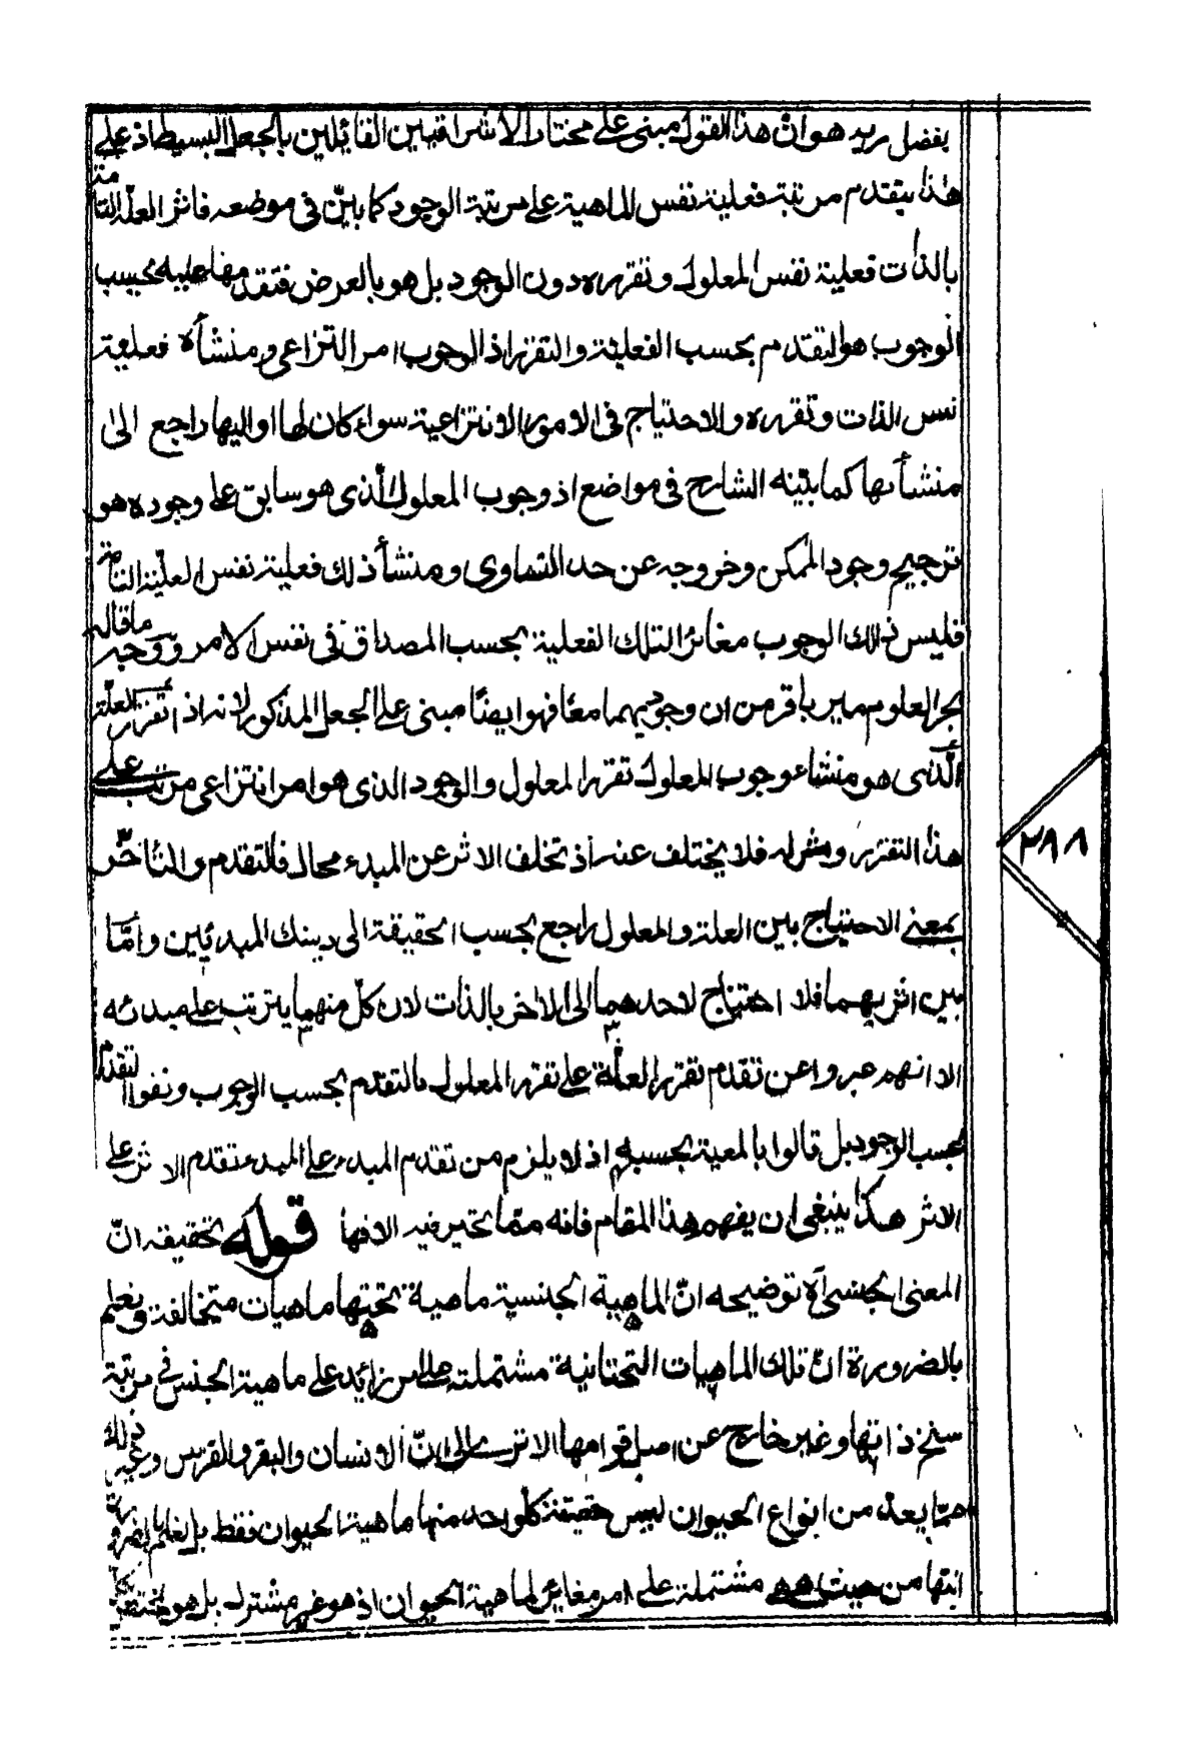 بفضل مريد هو ان هذا القول مبنى على مختار الاشراقيين القائلين بالجعل البسيط اذ على
هذا يتقدم مرتبة فعلية نفس الماهية على مرتبة الوجود كما بيّن فى موضعه فاثر العلة التامة
بالذات فعلية نفس المعلول وتقرره دون الوجود بل هو بالعرض فتقدمها عليه بحسب
الوجوب هو التقدم بحسب الفعلية والتقرر اذ الوجوب امر انتزاعى ومنشأه فعلية
نفس الذات وتقرره والاحتياج فى الامور الانتزاعية سواء كان لها او اليها راجع الى
منشأها كما بيّنه الشارح فى مواضع اذ وجوب المعلول الّذى هو سابق على وجوده هو
ترجيح وجود الممكن وخروجه عن حد التساوى ومنشأ ذلك فعلية نفس العلّة التامة
فليس ذلك الوجوب مغائر التلك الفعلية بحسب المصداق فى نفس الامر ووجه ما قاله
بحر العلوم مير باقر من ان وجوديهما معًا فهو ايضًا مبنى على الجعل المذكور لانه اذا تقرر العلّة
الّذى هو منشاء وجوب المعلول تقرر المعلول والوجود الذى هو امر انتزاعى مرتب على
هذا التقرر ومثله فلا يختلف عنه اذ تخلف الاثر عن المبدء محال فالتقدم والتأخّر
بمعنى الاحتياج بين العلة والمعلول راجع بحسب الحقيقة الى ذينك المبدئين وامّا
بين اثريهما فلا احتياج لاحدهما الى الاخر بالذات لان كلّ منهما يترتب على مبدئه
الا انهم عبروا عن تقدم تقرر العلّة على تقرر المعلول بالتقدم بحسب الوجوب ونفوا التقدم
بحسب الوجود بل قالوا بالمعية بحسبه اذ لا يلزم من تقدم المبدء على المبدء تقدم الاثر على
الاثر هكذا ينبغى ان يفهم هذا المقام فانه ممّا تحير فيه الافهام قوله تحقيقه انّ
المعنى الجنسى آه توضيحه انّ الماهية الجنسية ماهية تحتها ماهيات متخالفة ويعلم
بالضرورة انّ تلك الماهيات التحتانية مشتملة على امر زائد على ماهية الجنس فى مرتبة
سنخ ذاتها وغير خارج عن اصل قوامها الا ترى الى انّ الانسان والبقر والفرس وغير ذلك
ممّا يعد من انواع الحيوان ليس حقيقة كل واحد منها ماهية الحيوان فقط بل يعلم بالضرورة
انها من حيث هى مشتملة على امر مغائر لماهية الحيوان اذ هو غير مشترك بل هو
٢٨٨